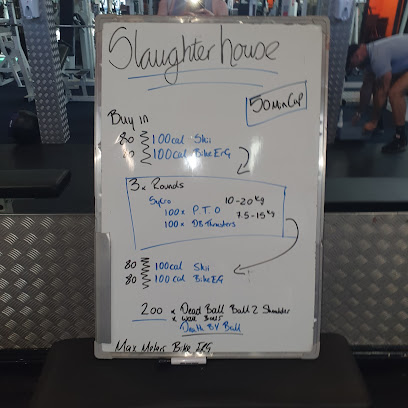 Slaughter house
50 min Cap
Buy in
80 100 cal Skii
80 100 cal BikeErG
3 x Rounds
Sykro 10-20 Kg
100x P T O 7.5-15 Kg
100x DB Thrusters
80 100 cal Skii
80 100 cal BikeErG
200 x Dead Ball Ball 2 Shoulder
x Wall Balls
Death By Ball
Max Meters Bike ERG